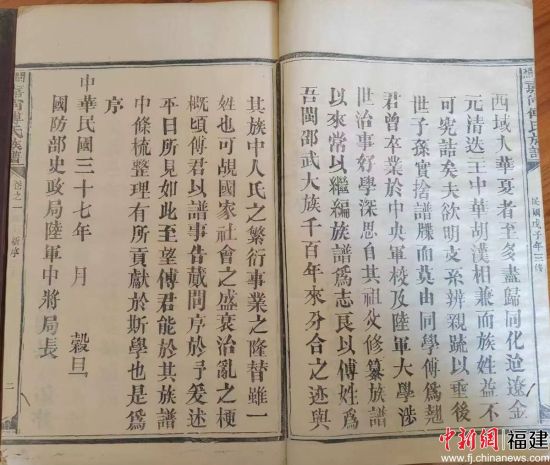 西域入華夏者至多盡歸同化迨遼金
元清迭王中華胡漢相兼而族姓益不
可究詰矣夫欲明支系辨親疏以垂後
世子孫實捨譜牒而莫由同學傅爲翹
君曾卒業於中央軍校及陸軍大學涉
世治事好學深思自其祖父修纂族譜
以來常以繼編族譜爲志良以傅姓爲
吾閩邵武大族千百年來分合之迹與
其族中人氏之繁衍事業之隆替雖一
姓也可覘國家社會之盛衰治亂之梗
概頃傅君以譜事告蕆問序於予爰述
平日所見如此至望傅君能於其族譜
中條梳整理有所貢獻於斯學也是爲
序
中華民國三十七年 月 穀旦
國防部史政局陸軍中將局長
傅氏族譜
卷之一 新序 二
中新網 福建
www.fj.chinanews.com